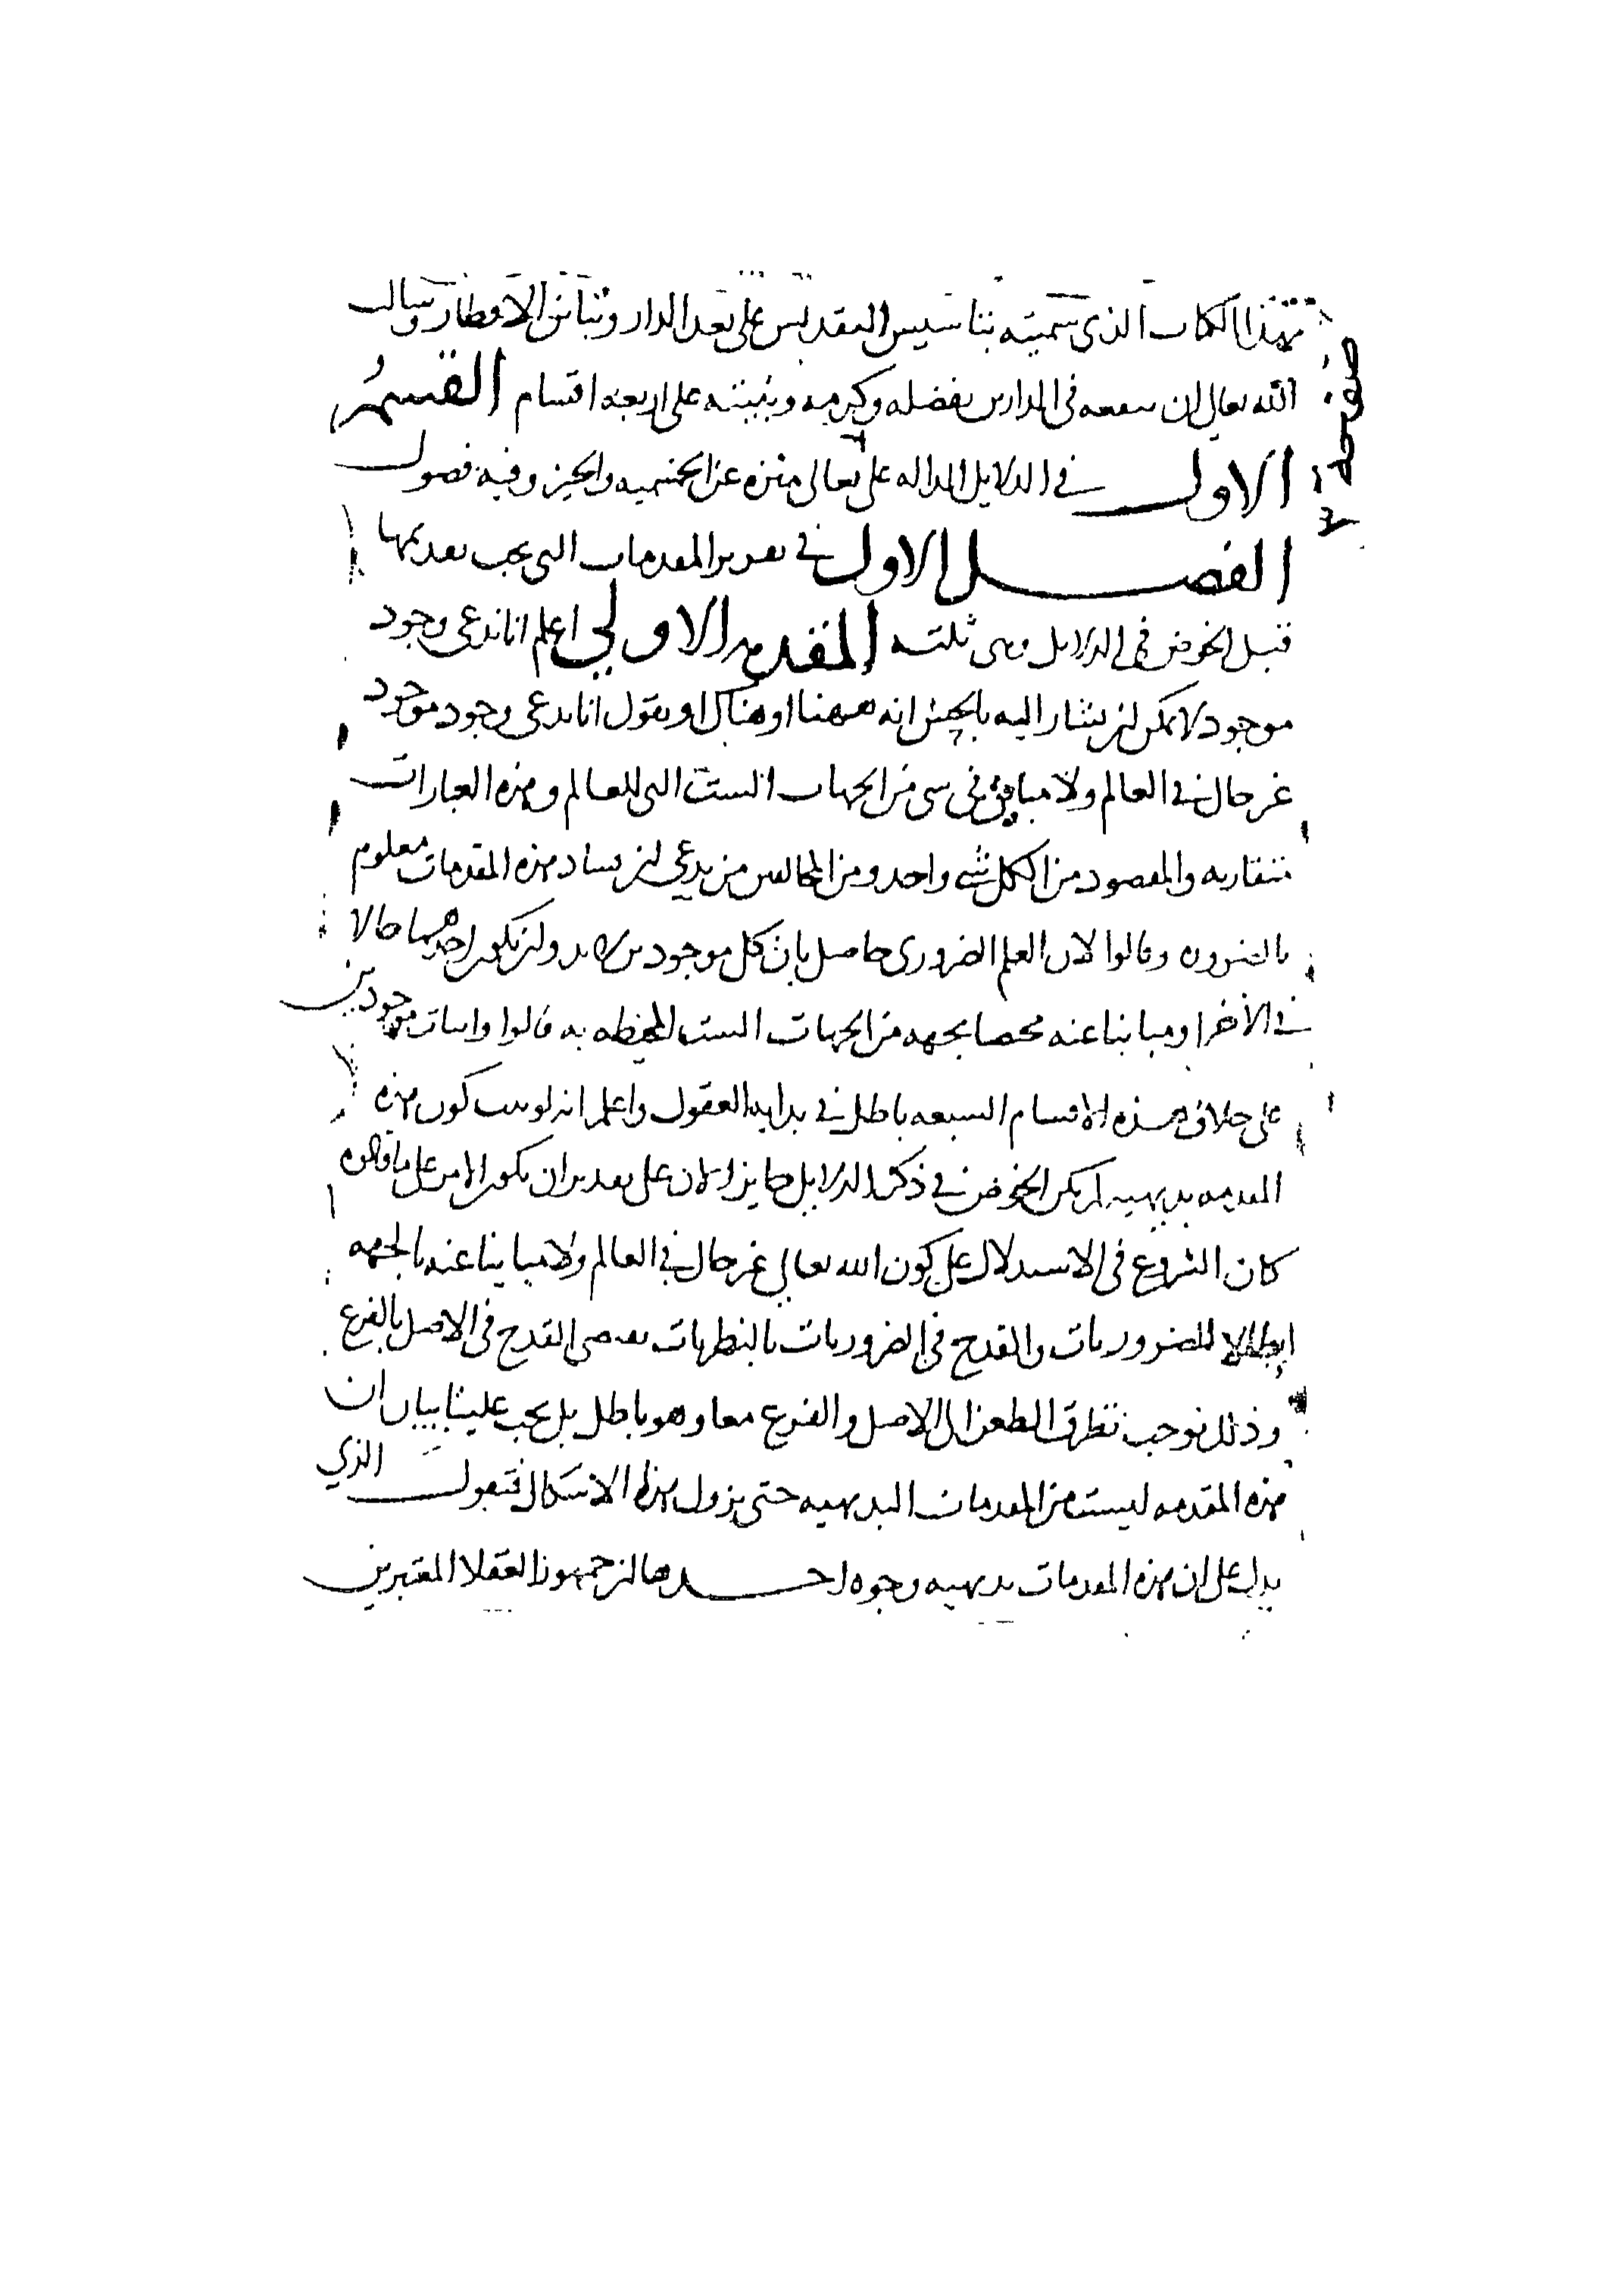 بهذا الكتاب الذي سميته بتاسيس التقديس على بعد الدار وتباين الاقطار وسالت
الله تعالى ان ينفعه في الدارين بفضله وكرمه وبنيته على اربعه اقسام القسمُ
الاول في الدلايل الداله على تعالى منزه عن الجسميه والحيز وفيه فصول
الفصل الاول في تقرير المقدمات التي يجب تقديمها
قبل الخوض في الدلايل وهي ثلثه المقدمه الاولي اعلم انا ندعي وجود
موجود لا يمكن ان يشار اليه بالحس انه ههنا او هناك او نقول انا ندعي وجود موجود
غير حال في العالم ولا مباين في شي من الجهات الست التي للعالم وهذه العبارات
متقاربه والمقصود من الكل شي واحد ومن المخالفين من يدعي ان فساد هذه المقدمات معلوم
بالضروره وقالوا لان العلم الضروري حاصل بان كل موجودين لابد وان يكون احدهما حالا
في الاخر او مباينا عنه مختصا بجهه من الجهات الست المحيطه به قالوا واثبات موجودين
على خلاف هذه الاقسام السبعه باطل في بدايه العقول واعلم انه لو ثبت كون هذه
المقدمه بديهيه لم يكن الخوض في ذكر الدلايل جايزا لان على تقدير ان يكون الامر على ما قالوه
كان الشروع في الاستدلال على كون الله تعالي غير حال في العالم ولا مباينا عنه بالجهه
ابطالا للضروريات والقدح في الضروريات بالنظريات يقتضي القدح في الاصل بالفرع
وذلك يوجب تطرق الطعن الى الاصل والفرع معا وهو باطل بل يجب علينا بيان ان
هذه المقدمه ليست من المقدمات البديهيه حتى يزول هذا الاشكال فنقول الذي
يدل على ان هذه المقدمات بديهيه وجوه احدها ان جمهور العقلا المعتبرين